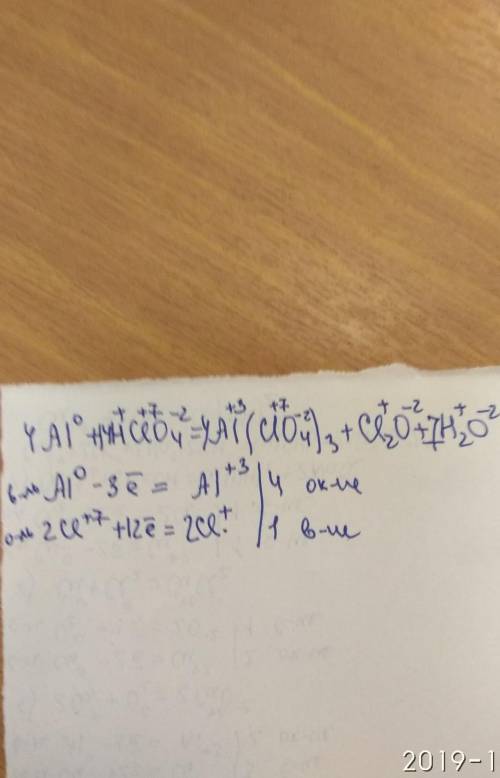 4Al⁰+14H⁺Cl⁺⁷O₄⁻²=4Al⁺³(Cl⁺⁷O₄⁻²)₃+Cl₂⁺O⁻²+7H₂⁺O⁻²
в-ль Al⁰ - 3ē = Al⁺³ | 4 ок-ие
о-ль 2Cl⁺⁷ +12ē = 2Cl⁺ | 1 в-ие
2019-1